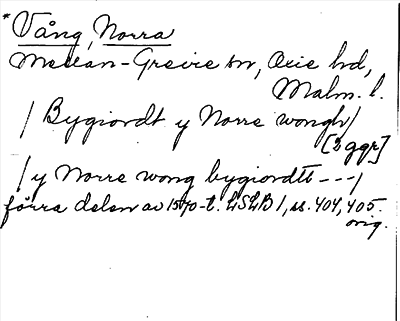 * Vång, Norra
Mellan-Grevie sn, Oxie hd,
Malm. l.
/ Bygiordt y Norre wongh /
[3 ggr]
/ y Norre wong bygiordtt --- /
förra delen av 1570-t. LSLB 1, ss. 404, 405.
orig.